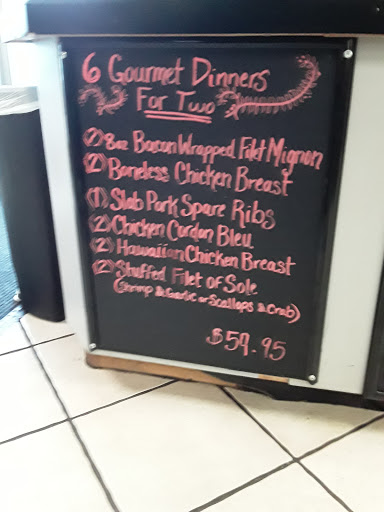 6 Gourmet Dinners
For Two
(2) 8oz Bacon Wrapped Filet Mignon
(2) Boneless Chicken Breast
(1) Slab Pork Spare Ribs
(2) Chicken Cordon Bleu
(2) Hawaiian Chicken Breast
(2) Stuffed Filet of Sole
(Shrimp & Garlic or Scallops & Crab)
$59.95